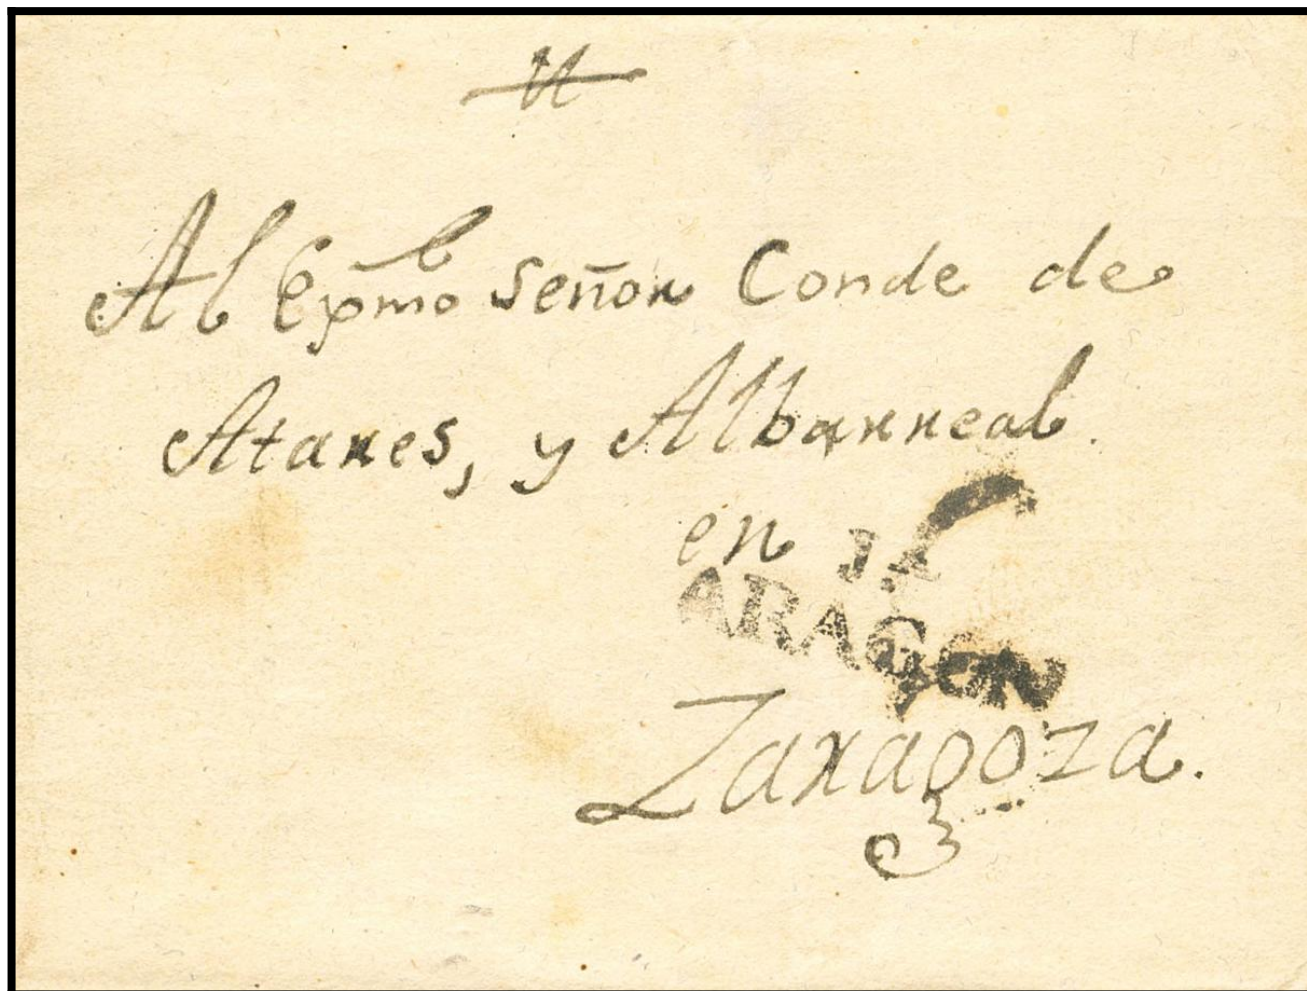 Al Exmo Señor Conde de
Atares, y Albarreal.
en
JA
ARAGON
Zaragoza.